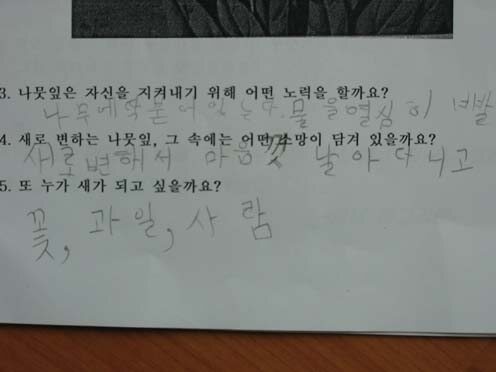 3. 나뭇잎은 자신을 지켜내기 위해 어떤 노력을 할까요?
나무에 딱 붙어 있는다. 물을 열심히
4. 새로 변하는 나뭇잎, 그 속에는 어떤 소망이 담겨 있을까요?
새로 변해서 마음껏 날아다니고
5. 또 누가 새가 되고 싶을까요?
꽃, 과일, 사람